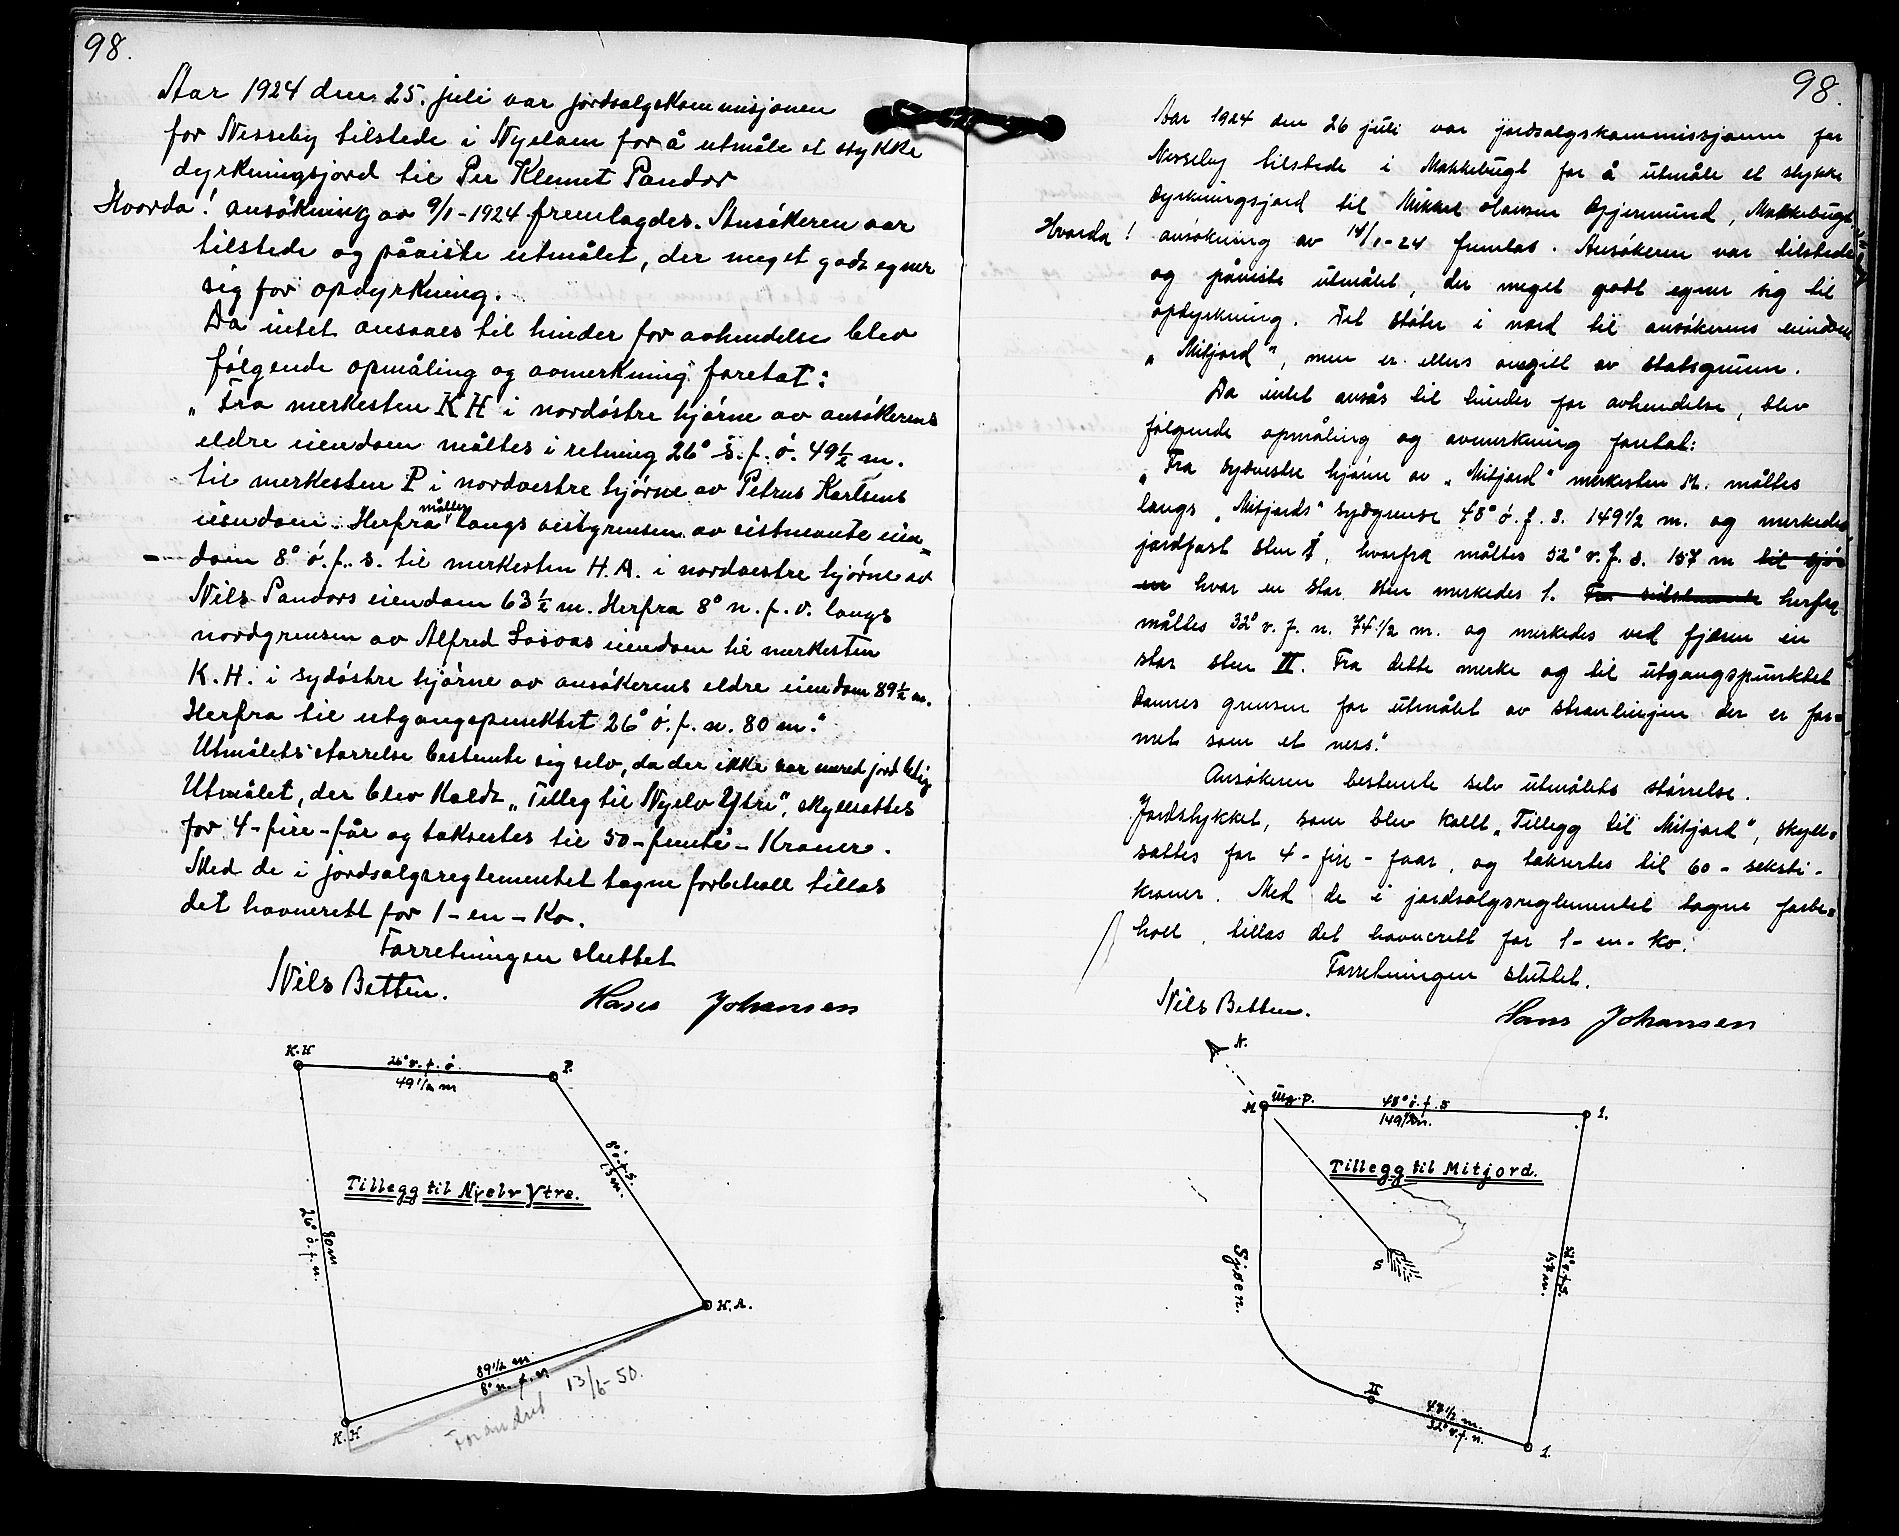 98.
Aar 1924 den 25. juli var jordsalgskommisjonen
for Nesseby tilstede i Nyelven for å utmåle et stykke
dyrkningsjord til Per Klemet Pandor
Hvorda! ansökning av 9/1-1924 fremlagdes. Ansökeren var
tilstede og påviste utmålet, der meget godt egner
sig for opdyrkning.
Da intet ansaaes til hinder for avhendelse blev
fölgende opmåling og avmerkning foretat:
"Fra merkesten K H i nordöstre hjörne av ansökerens
eldre eiendom måltes i retning 26° s. f. ö. 49½ m.
til merkesten P i nordvestre hjörne av Petrus Karlsens
eiendom. Herfra måltes langs vestgrensen av sistnevnte eien=
dom 8° ö. f. s. til merkesten H. A. i nordvestre hjörne av
Nils Pandors eiendom 63½ m. Herfra 8° n. f. v. langs
nordgrensen av Alfred eiendom til merkesten
K. H. i sydöstre hjörne av ansökerens eldre eiendom 89½ m.
Herfra til utgangspunktet 26° ö. f. n. 80 m."
Utmålets störrelse bestemte sig selv, da der ikke var mered jord ledig
Utmålet, der blev kaldt "Tilleg til Nyelv Ytre", skyllsattes
for 4-fire-får og taksertes til 50-femti-Kroner.
Med de i jordsalgsreglementet tagne forbehold tillas
det havnerett for 1-en-Ko.
Forretningen sluttet
Nils Betten. Hans Johansen
K.H 26° v. f. ö. 49 1/2 m P.
8° ö. f. s.
63 m.
Tillegg til Nyelv Ytre.
80 m
26° ö. f. n.
H.A.
89 1/2 m
8° n. f. v
K.H
Forandret 13/6-50.
98.
Aar 1924 den 26 juli var jordsalgskommissjonen for
Nesseby tilstede i Makkebugt for å utmåle et stykke
dyrkningsjord til Mikkel Olavsen Gjermund, Makkebugt.
Hvorda! ansökning av 14/1-24 fremlas. Ansökeren var tilstede
og påviste utmålet, der meget godt egner sig til
opdyrkning. Det stöter i nord til ansökerens eiendom
"Mitjord", men er ellers omgitt av statsgrunn.
Da intet ansås til hinder for avhendelse, blev
fölgende opmåling og avmerkning foretat:
"Fra sydvestre hjörne av "Mitjord" merkesten M. måltes
langs "Mitjords" sydgrense 48° ö. f. s. 149 1/2 m. og merkedes
jordfast sten I, hvorfra måltes 52° v. f. s. 157 m til sjö-
en hvor en stor sten merkedes 1. Fra sidstnevnte herfra
måltes 32° v. f. n. 74 1/2 m. og merkedes ved fjæren en
stor sten II. Fra dette merke og til utgangspunktet
dannes grensen for utmålet av strandlinjen der er for=
met som et ness."
Ansökeren bestemte selv utmålets störrelse.
Jordstykket, som blev kallt "Tillegg til Mitjord", skyll=
sattes for 4-fire-faar, og taksertes til 60-seksti-
kroner. Med de i jordsalgsreglementet tagne forbe=
holl, tillas det havnerett for 1-en-ko.
Forretningen sluttet.
Nils Betten. Hans Johansen
N.
M Utg.p. 48° ö. f. s 149 1/2 m. 1.
Tillegg til Mitjord.
Sjøen.
S
52° v. f. s.
157 m.
II
32° v. f. n.
1.